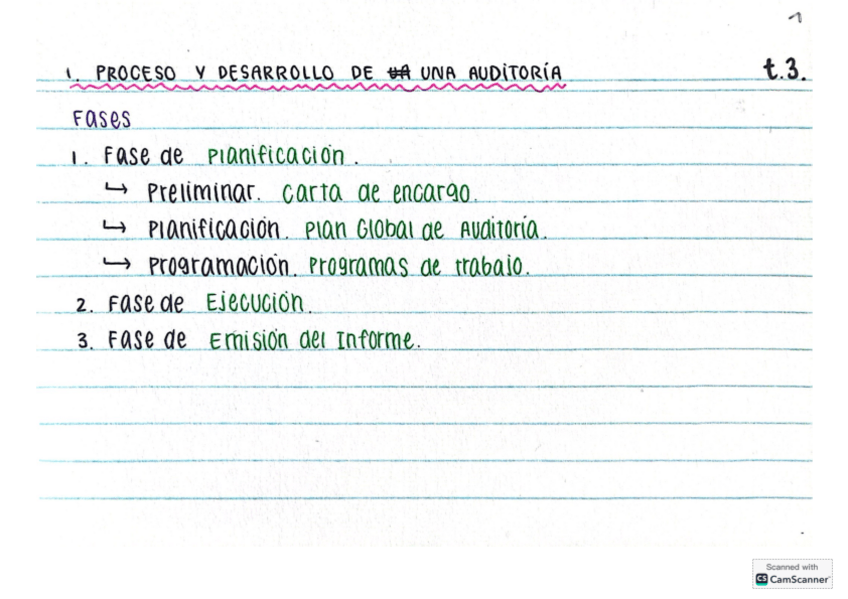 1
1. PROCESO Y DESARROLLO DE UNA AUDITORÍA t.3.
Fases
1. Fase de Planificación.
↳ Preliminar. Carta de encargo.
↳ Planificación. Plan Global de Auditoría.
↳ Programación. Programas de trabajo.
2. Fase de Ejecución.
3. Fase de Emisión del Informe.
Scanned with
CS CamScanner